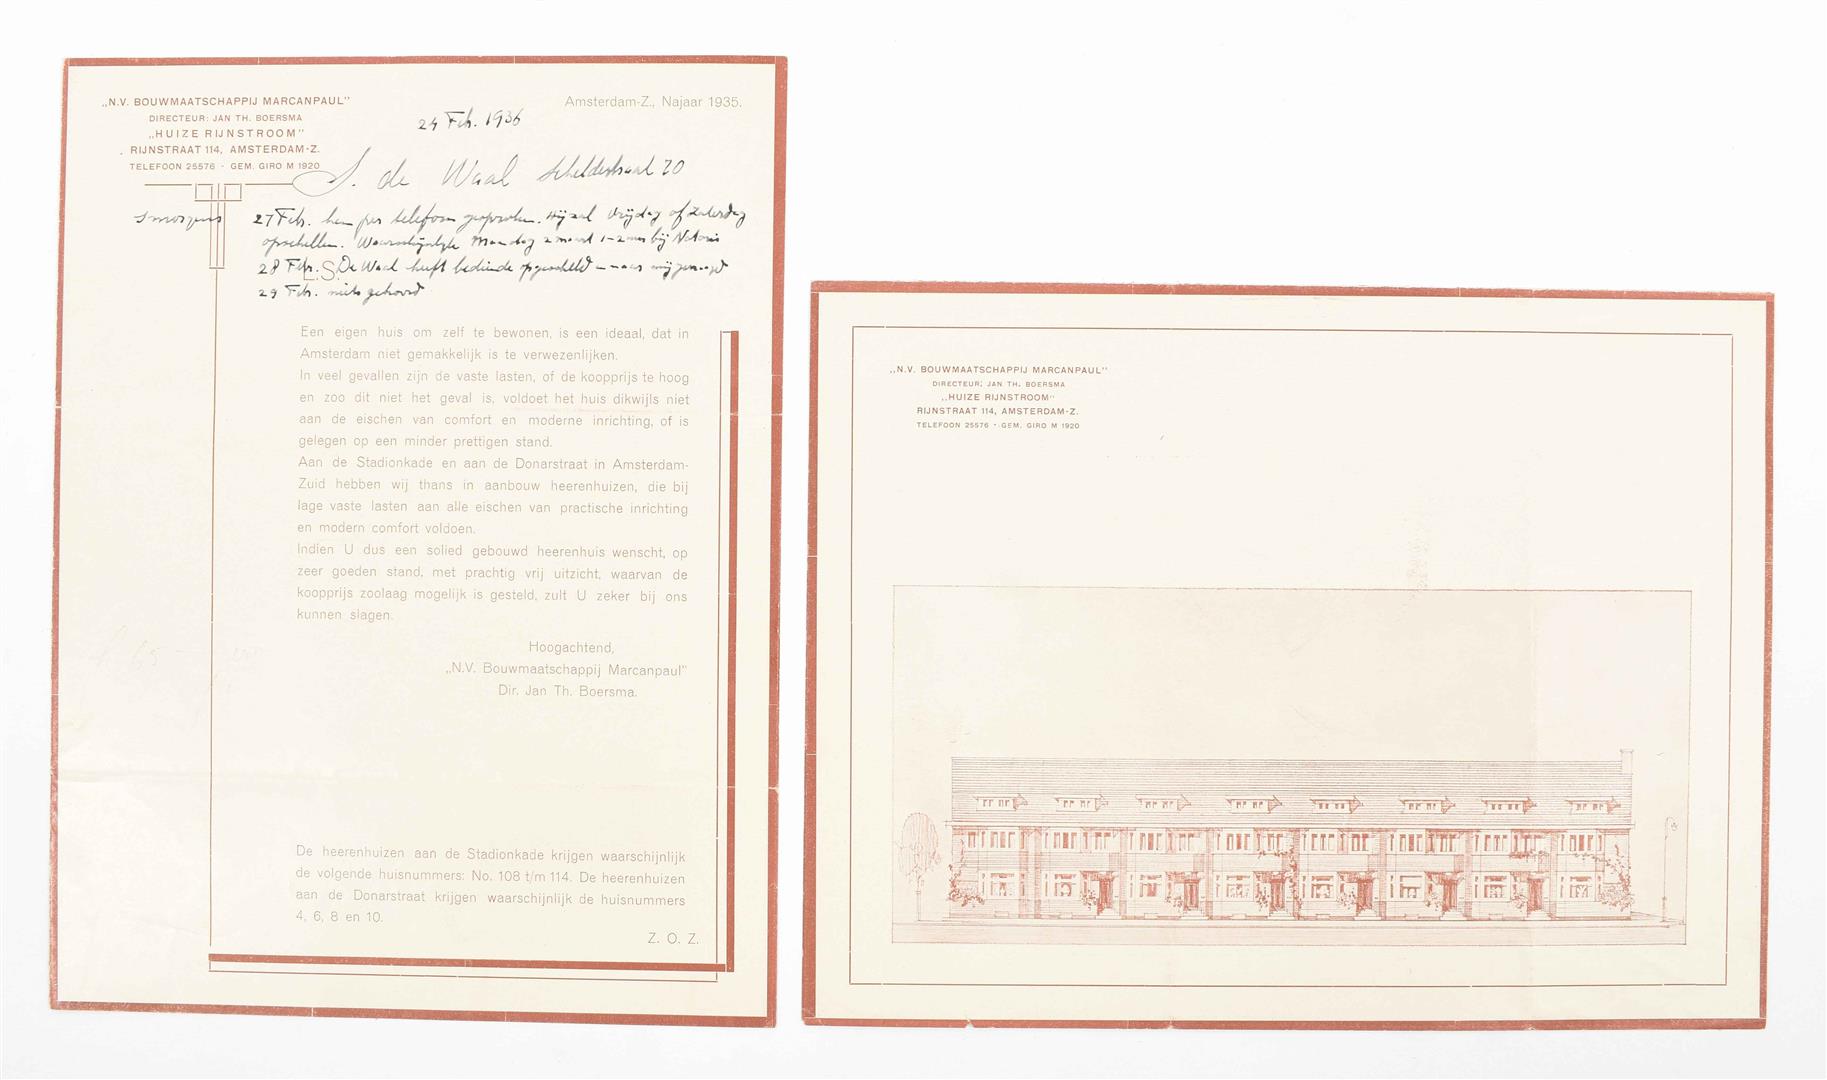 „N.V. BOUWMAATSCHAPPIJ MARCANPAUL"
DIRECTEUR: JAN TH. BOERSMA
„HUIZE RIJNSTROOM"
RIJNSTRAAT 114, AMSTERDAM-Z.
TELEFOON 25576 - GEM. GIRO M 1920
Amsterdam-Z., Najaar 1935.
24 Feb. 1936
S. de Waal Scheldestraat 70
smorgens 27 Feb. hem per telefoon gesproken. Hij zal Vrijdag of Zaterdag
opschellen. Waarschijnlijk Maandag 2 maart 1-2 uur bij Notaris
28 Feb. De Waal heeft opgescheld naar mij gevraagd
29 Feb. niets gehoord
L.S.
Een eigen huis om zelf te bewonen, is een ideaal, dat in
Amsterdam niet gemakkelijk is te verwezenlijken.
In veel gevallen zijn de vaste lasten, of de koopprijs te hoog
en zoo dit niet het geval is, voldoet het huis dikwijls niet
aan de eischen van comfort en moderne inrichting, of is
gelegen op een minder prettigen stand.
Aan de Stadionkade en aan de Donarstraat in Amsterdam-
Zuid hebben wij thans in aanbouw heerenhuizen, die bij
lage vaste lasten aan alle eischen van practische inrichting
en modern comfort voldoen.
Indien U dus een solied gebouwd heerenhuis wenscht, op
zeer goeden stand, met prachtig vrij uitzicht, waarvan de
koopprijs zoolaag mogelijk is gesteld, zult U zeker bij ons
kunnen slagen.
Hoogachtend,
„N.V. Bouwmaatschappij Marcanpaul"
Dir. Jan Th. Boersma.
De heerenhuizen aan de Stadionkade krijgen waarschijnlijk
de volgende huisnummers: No. 108 t/m 114. De heerenhuizen
aan de Donarstraat krijgen waarschijnlijk de huisnummers
4, 6, 8 en 10.
Z. O. Z.
„N.V. BOUWMAATSCHAPPIJ MARCANPAUL"
DIRECTEUR: JAN TH. BOERSMA
„HUIZE RIJNSTROOM"
RIJNSTRAAT 114, AMSTERDAM-Z.
TELEFOON 25576 - GEM. GIRO M 1920